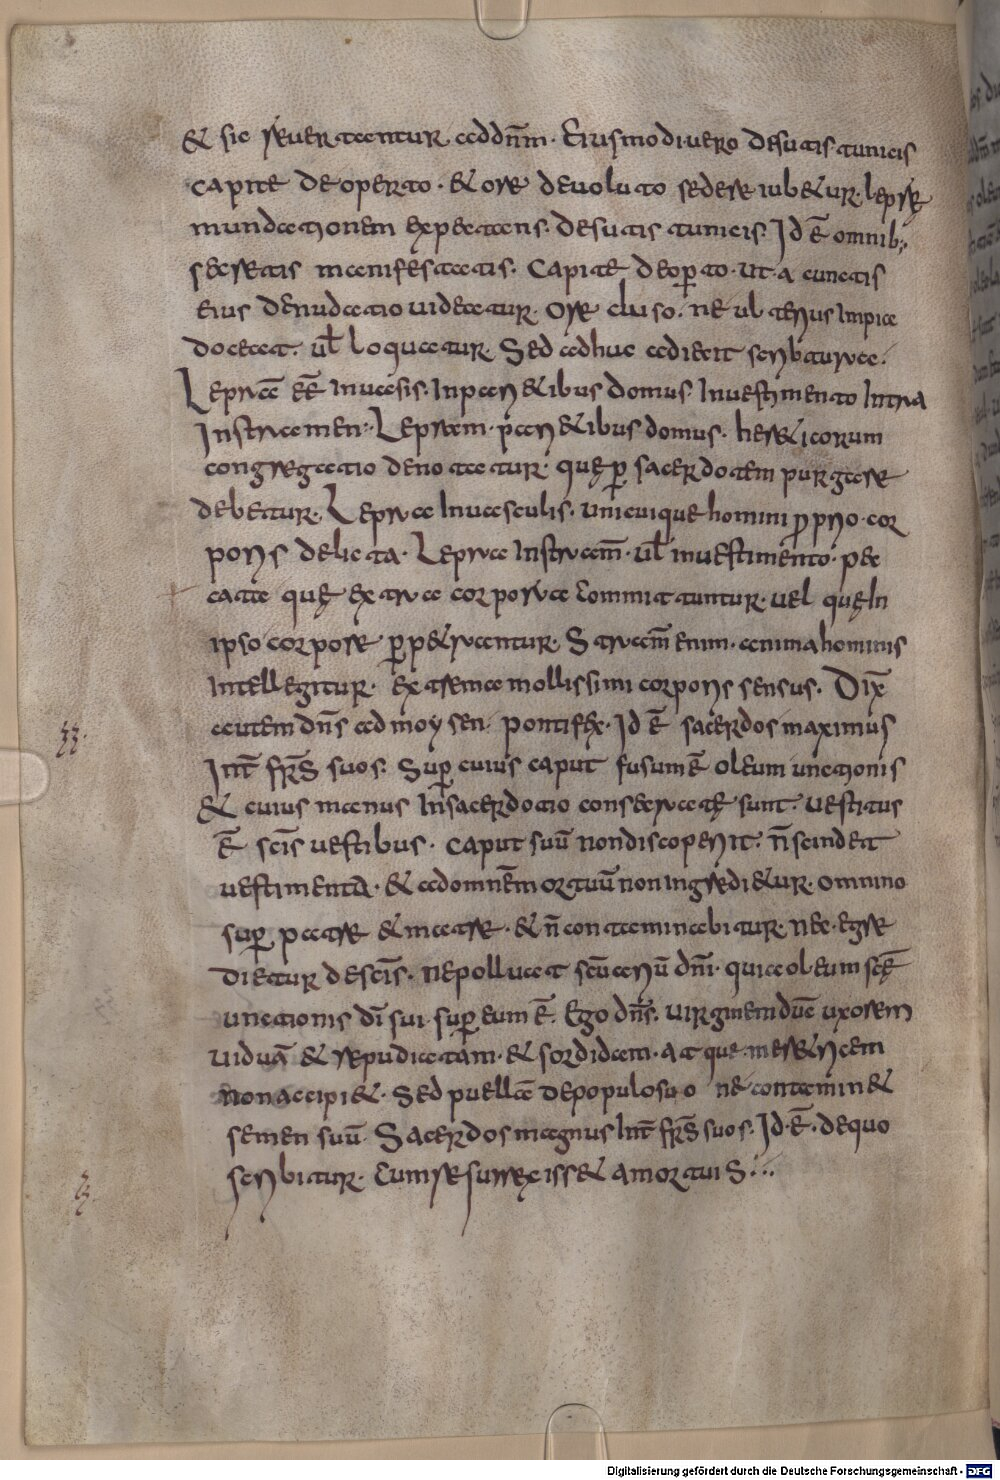 & sic reuertantur ad dñm. Eiusmodi uero desutis tunicis
capite deoperto. & ore deuoluto sedere iub&ur. lepre
mundationem expectans. desutis tunicis. Id ē omnib;
secretis manifestatis. Capite deoꝑto. ut a cunctis
eius denudatio uideatur. Ore cluso. ne ulterius impia
doceat. ul̄ loquatur. Sed adhuc adiecit scribtura.
Leprā eē in uasis. In pari&ibus domus. In uestimento. Intra
In stramen. Lepram. pari&ibus domus. her&icorum
congregatio denotatur. quę ꝑ sacerdotem purgare
debetur. Lepra In uasculis. unicuique homini ꝓprio cor
poris delicta. Lepra In stram̄. ul̄ in uestimento. pec
cata que extra corpora committuntur. uel quę In
ipso corpore ꝑp&rantur. Stram̄ enim. anima hominis
Intellegitur. extrema mollissimi corporis sensus. Dix̄
autem dñs ad moysen. pontifex. Id ē sacerdos maximus
Inī fr̄s suos. Suꝑ cuius caput fusum ē oleum unctionis
& cuius manus In sacerdotio consecratę sunt. uestitus
ē scīs uestibus. caput suū non discoperit. n̄ scindeat
uestimenta. & ad omnēm ortuū non ingredi&ur. omnino
suꝑ patre & matre. & n̄ contaminabitur. nec egre
diatur de scīs. ne polluat scūarū dñi. quia oleum scē
unctionis dī sui suꝑ eum ē. Ego dñs. uirginem ducē uxorem
uiduā & repudiatam. & sordidam. atque mer&ricem
non accipi&. Sed puellā de populo suo ne contamin&
semen suū. Sacerdos magnus Int̄ fr̄s suos. Id. ē. de quo
scribitur. Cum resurrexiss& a mortuis...
Digitalisierung gefördert durch die Deutsche Forschungsgemeinschaft - DFG